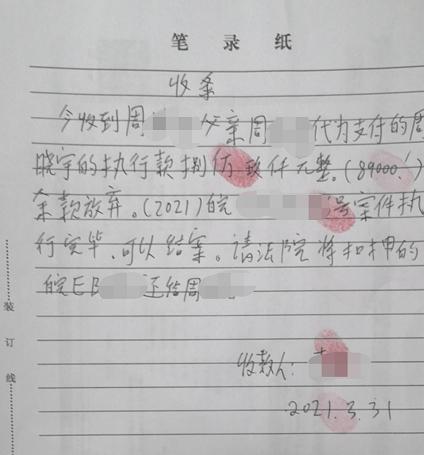 笔录纸
收条
今收到周 父亲周 代为支付的周
晓宇的执行款捌仿玖仟元整。(89000.!)
余款放弃。(2021)皖 号案件执
行完毕,可以结案。请法院将扣押的
皖EB 还给周
收款人:
2021.3.31
装
订
线